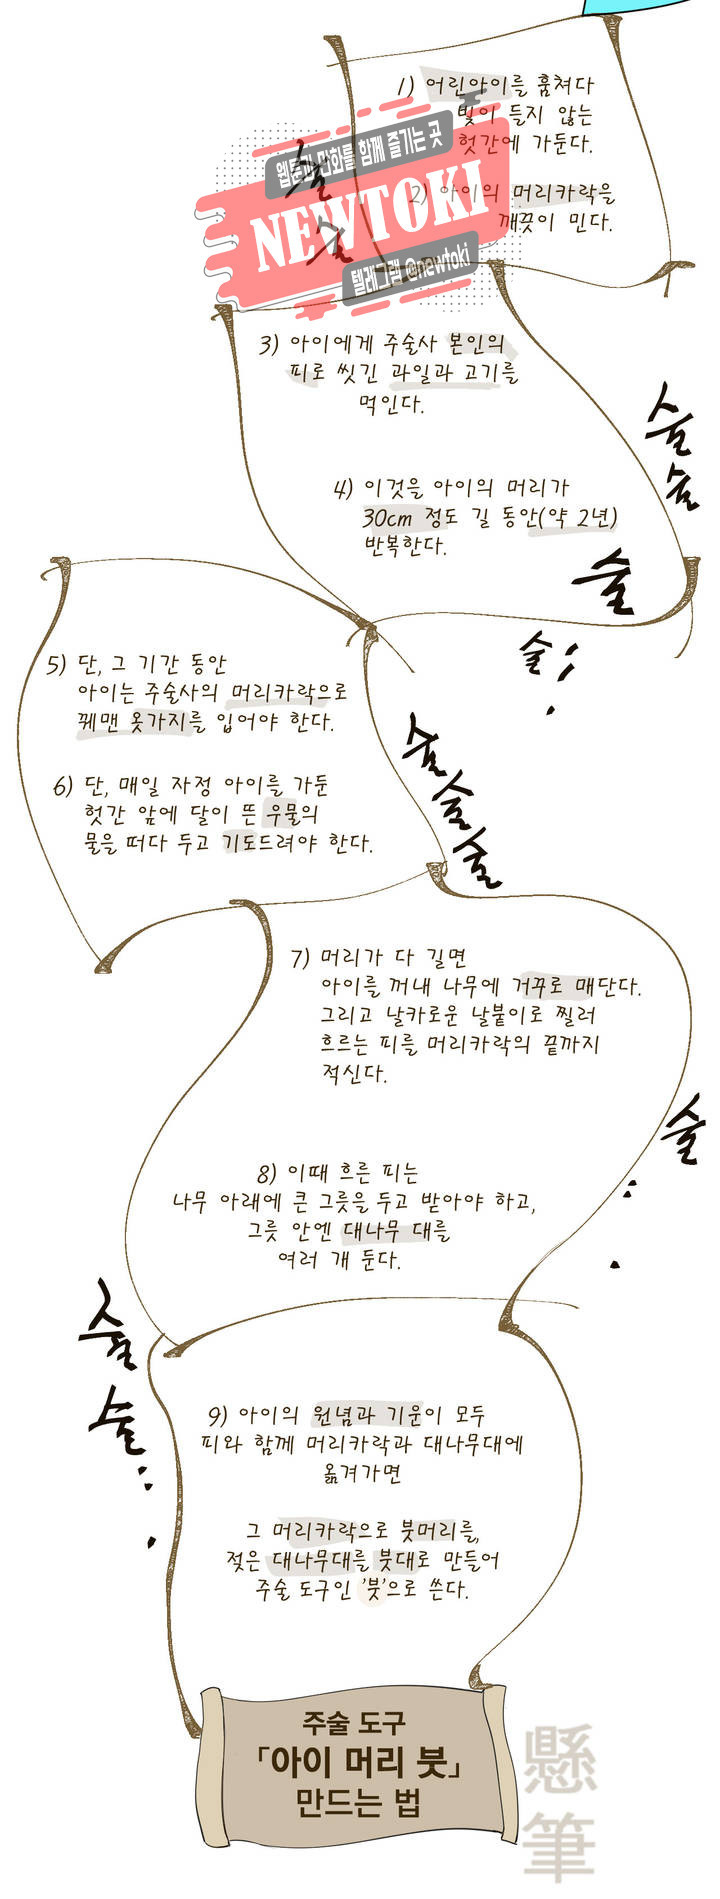 1) 어린아이를 훔쳐다
빛이 들지 않는
헛간에 가둔다.
웹툰과 만화를 함께 즐기는 곳
NEWTOKI
텔레그램 @newtoki
술
술
2) 아이의 머리카락을
깨끗이 민다.
3) 아이에게 주술사 본인의
피로 씻긴 과일과 고기를
먹인다.
술
술
4) 이것을 아이의 머리가
30cm 정도 길 동안(약 2년)
반복한다.
술
술
5) 단, 그 기간 동안
아이는 주술사의 머리카락으로
꿰맨 옷가지를 입어야 한다.
술
술
술
6) 단, 매일 자정 아이를 가둔
헛간 앞에 달이 뜬 우물의
물을 떠다 두고 기도드려야 한다.
7) 머리가 다 길면
아이를 꺼내 나무에 거꾸로 매단다.
그리고 날카로운 날붙이로 찔러
흐르는 피를 머리카락의 끝까지
적신다.
술
8) 이때 흐른 피는
나무 아래에 큰 그릇을 두고 받아야 하고,
그릇 안엔 대나무 대를
여러 개 둔다.
술
술
9) 아이의 원념과 기운이 모두
피와 함께 머리카락과 대나무대에
옮겨가면
그 머리카락으로 붓머리를,
젖은 대나무대를 붓대로 만들어
주술 도구인 '붓'으로 쓴다.
주술 도구
「아이 머리 붓」
만드는 법
懸
筆